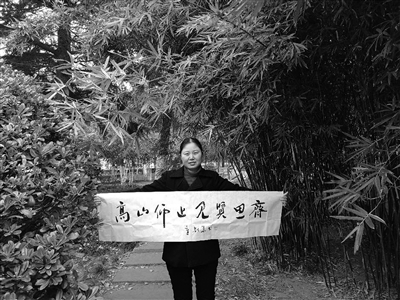 高山仰止见贤思齐